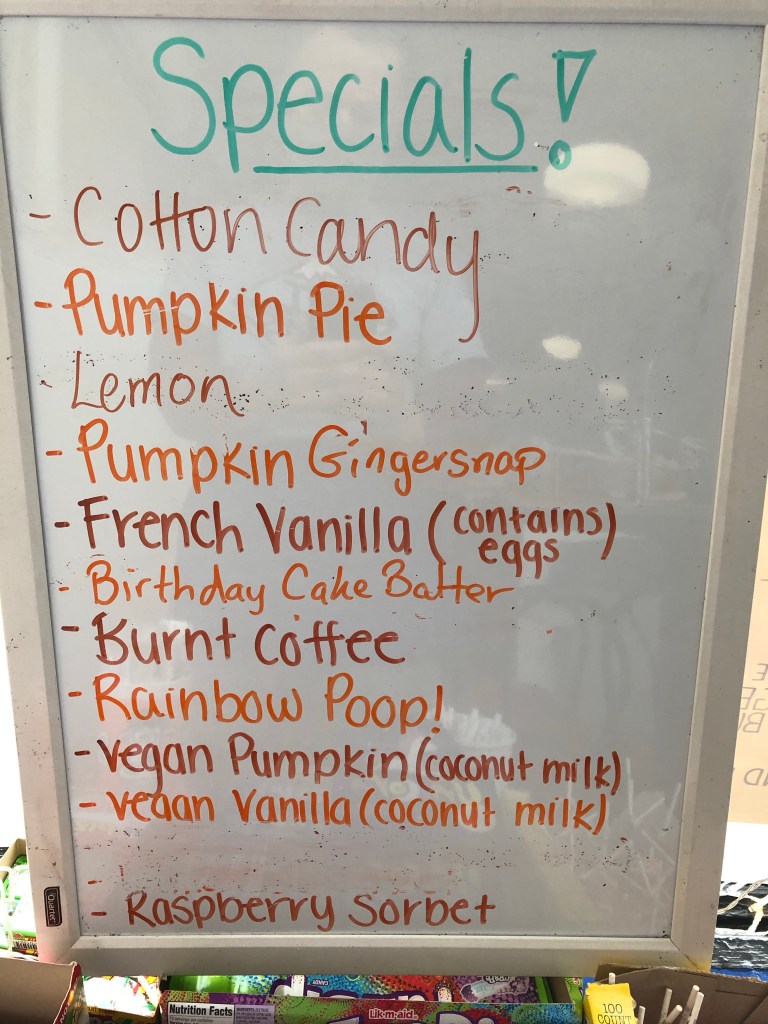 Specials!
- Cotton Candy
- Pumpkin Pie
- Lemon
- Pumpkin Gingersnap
- French Vanilla (contains eggs)
- Birthday Cake Batter
- Burnt Coffee
- Rainbow Poop!
- Vegan Pumpkin (coconut milk)
- Vegan Vanilla (coconut milk)
-
- Raspberry Sorbet
Quartet
Nutrition Facts
CANDY
Lik-m-aid
100
COUNT